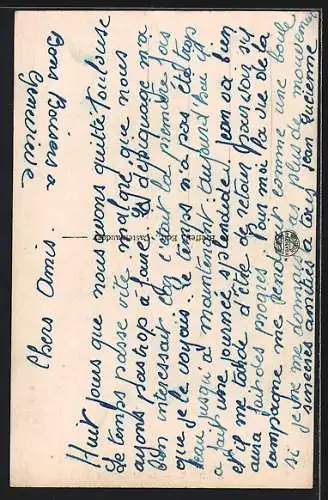 Chers Amis.
Huit jours que nous avons quitté Toulouse
Le temps passe vite malgré que nous
ayons pas trop à faire. Le dépiquage m'a
bien interessait car c'était la première fois
que je le voyais. Le temps n'a pas été trop
beau jusqu'à maintenant; aujourd'hui il
a fait une journée splendide. Jean va bien
et il me tarde d'être de retour pour voir s'il
aura fait des progrès. Pour moi la vue de la
campagne me rendrait comme une boule
si je ne me donnais plus de mouvement
sincères amitiés à tous Jean Lucienne
Bons Baisers à
Geneviève
Castelnaudary